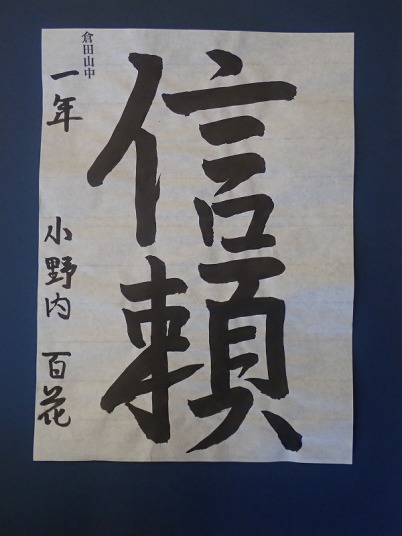 信頼
倉田山中
一年 小野内 百花